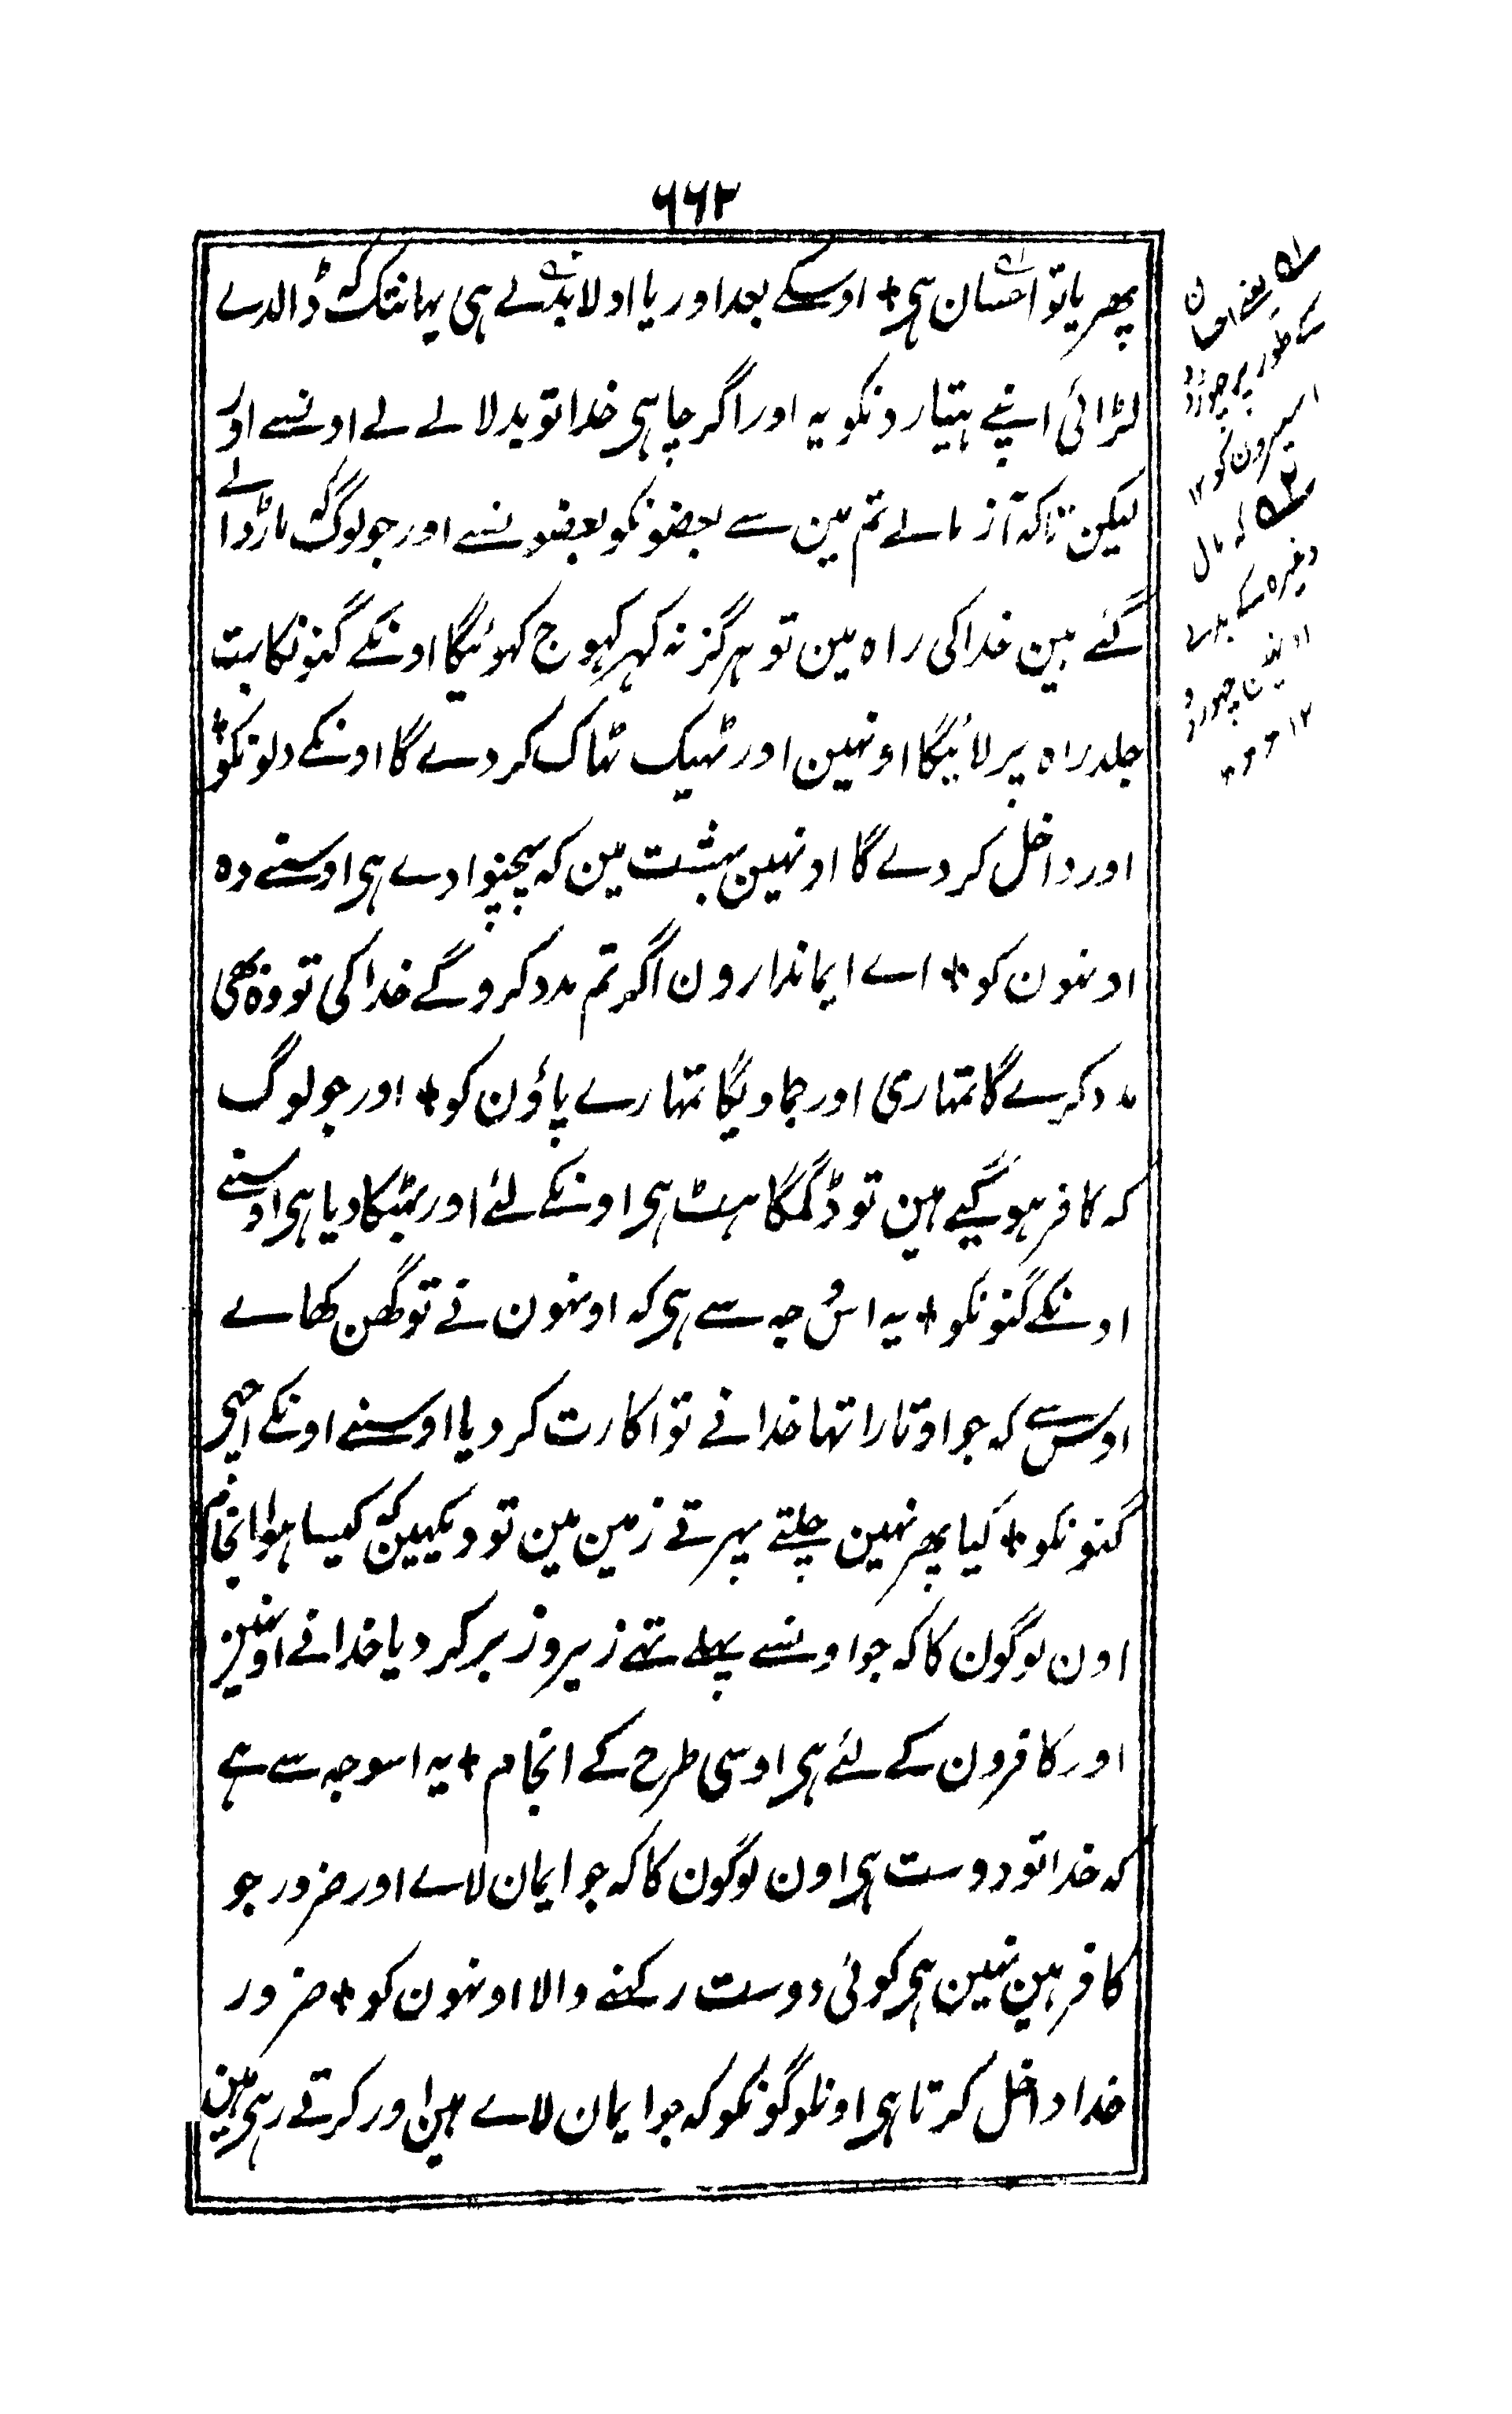 ۶۶۲
پھر یا تو احسان ہی + اوسکے بعد اور یا اولا بدلے ہی یہانتک کہ ڈالدے
لڑائی اپنے ہتیارونکو یہ اور اگر چاہی خدا تو بدلا لے لے اونسے اور
لیکن تاکہ آزمالے تم مین سے بعضونکو بعضونسے اور جو لوگ کہ مارڈالے
گئے ہین خدا کی راہ مین تو ہرگز نہ کہر کہوج کہوئیگا اونکے گنونکا بت
جلد راہ پر لائیگا اونہین اور ٹہیک ٹہاک کر دے گا اونکے دلونکو +
اور داخل کر دے گا اونہین بہشت مین کہ پہچنوا دے ہی اوسنے وہ
اونہون کو + اے ایماندارون اگر تم مدد کروگے خدا کی تو وہ بھی
مدد کریگا تمہاری اور جماویگا تمہارے پاؤن کو + اور جو لوگ
کہ کافر ہو گیے ہین تو ڈگمگاہٹ ہی اونکے لئے اور بہٹکا دیا ہی اوسنے
اونکے گنونکو + یہ اس وجہ سے ہی کہ اونہون نے تو گھن کھاے
اوس سے کہ جو اوتارا تہا خدا نے تو اکارت کر دیا اوسنے اونکے اچھی
گنونکو + کیا پھر نہین چلتے پہرتے زمین مین تو دیکہین کہ کیسا ہوا انجام
اون لوگون کا کہ جو اونسے پہلے تہے زیر و زبر کر دیا خدا نے اونہین
اور کافرون کے لئے ہی اوسی طرح کے انجام + یہ اسوجہ سے ہے
کہ خدا تو دوست ہی اون لوگون کا کہ جو ایمان لاے اور ضرور جو
کافر ہین نہین ہی کوئی دوست رکہنے والا اونہون کو + ضرور
خدا داخل کرتا ہی اونلوگونکو کہ جو ایمان لاے ہین اور کرتے رہی ہین
۱ یعنی احسان
کے طور پر چھوڑ دو
اسیرون کو ۱۲
۲ کہ مال
وغیرہ کے بدلے
اونہین چھوڑ دو
۱۲